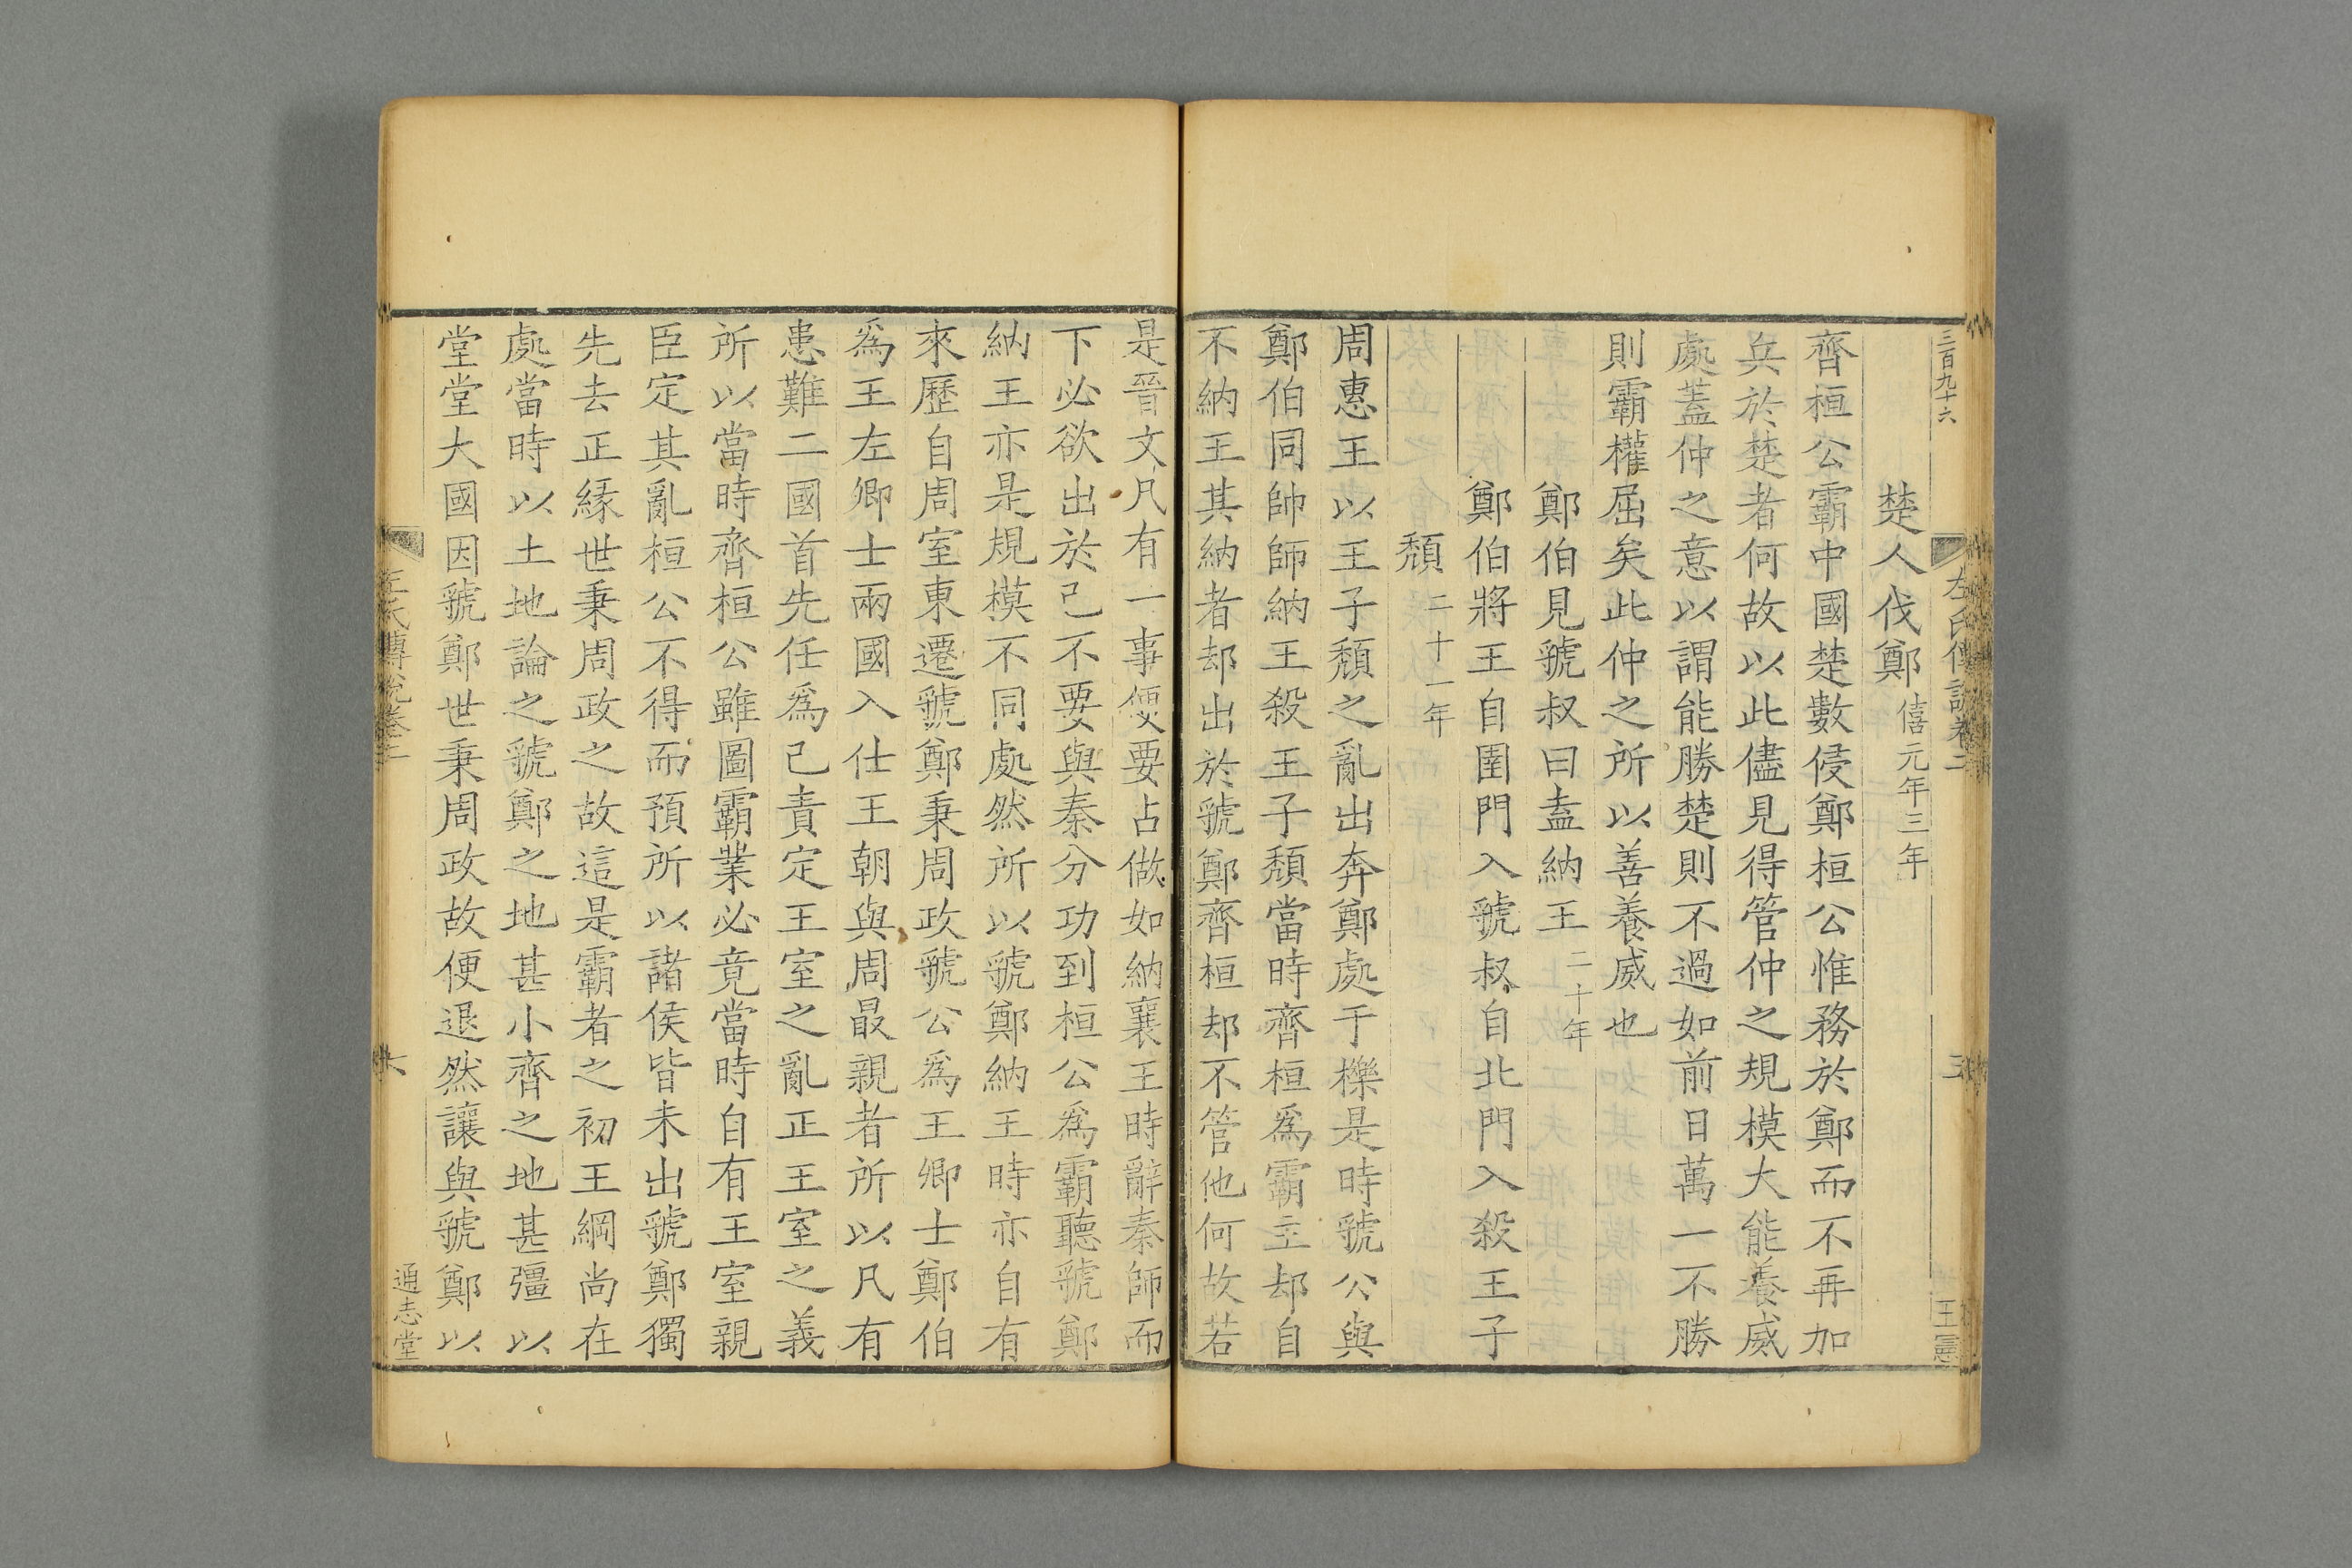 三百九十六
左氏傳說卷二
王憲
楚人伐鄭僖元年三年
齊桓公霸中國楚數侵鄭桓公惟務於鄭而不再加
兵於楚者何故以此儘見得管仲之規模大能養威
處蓋仲之意以謂能勝楚則不過如前日萬一不勝
則霸權屈矣此仲之所以善養威也
鄭伯見虢叔曰盍納王二十年
鄭伯將王自圉門入虢叔自北門入殺王子
頹二十一年
周惠王以王子頹之亂出奔鄭處于櫟是時虢公與
鄭伯同帥師納王殺王子頹當時齊桓為霸主却自
不納王其納者却出於虢鄭齊桓却不管他何故若
是晉文凡有一事便要占做如納襄王時辭秦師而
下必欲出於己不要與秦分功到桓公為霸聽虢鄭
納王亦是規模不同處然所以虢鄭納王時亦自有
來歷自周室東遷虢鄭秉周政虢公為王卿士鄭伯
為王左卿士兩國入仕王朝與周最親者所以凡有
患難二國首先任為己責定王室之亂正王室之義
所以當時齊桓公雖圖霸業必竟當時自有王室親
臣定其亂桓公不得而預所以諸侯皆未出虢鄭獨
先去正緣世秉周政之故這是霸者之初王綱尚在
處當時以土地論之虢鄭之地甚小齊之地甚彊以
堂堂大國因虢鄭世秉周政故便退然讓與虢鄭以
左氏傳說卷二
六
通志堂